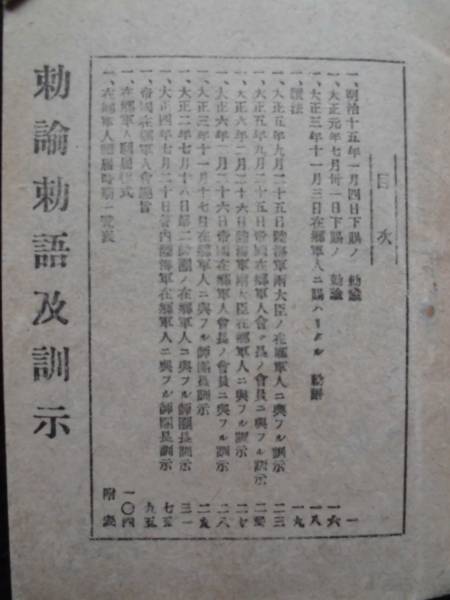 目次
一、明治十五年一月四日下賜ノ勅諭 一
一、大正元年七月卅一日下賜ノ勅諭 一六
一、大正三年十一月三日在鄕軍人ニ賜ハリタル勅語 一八
一、讀法 一九
一、大正五年九月二十五日陸海軍兩大臣ノ在鄕軍人ニ與フル訓示 二三
一、大正五年九月二十五日帝國在鄕軍人會々長ノ會員ニ與フル訓示
一、大正六年二月二十六日陸海軍兩大臣在鄕軍人ニ與フル訓示 二七
一、大正六年二月二十六日帝國在鄕軍人會長ノ會員ニ與フル訓示 二八
一、大正三年十一月十七日在鄕軍人ニ與フル師團長訓示 二九
一、大正二年七月十八日第二師團ノ在鄕軍人ニ與フル師團長訓示 三一
一、大正四年七月二十日管內陸海軍在鄕軍人ニ與フル師團長訓示 七五
一、帝國在鄕軍人會 九五
一、在鄕軍人 一〇四
一、在鄕軍人 一覽表 附表
勅諭勅語及訓示